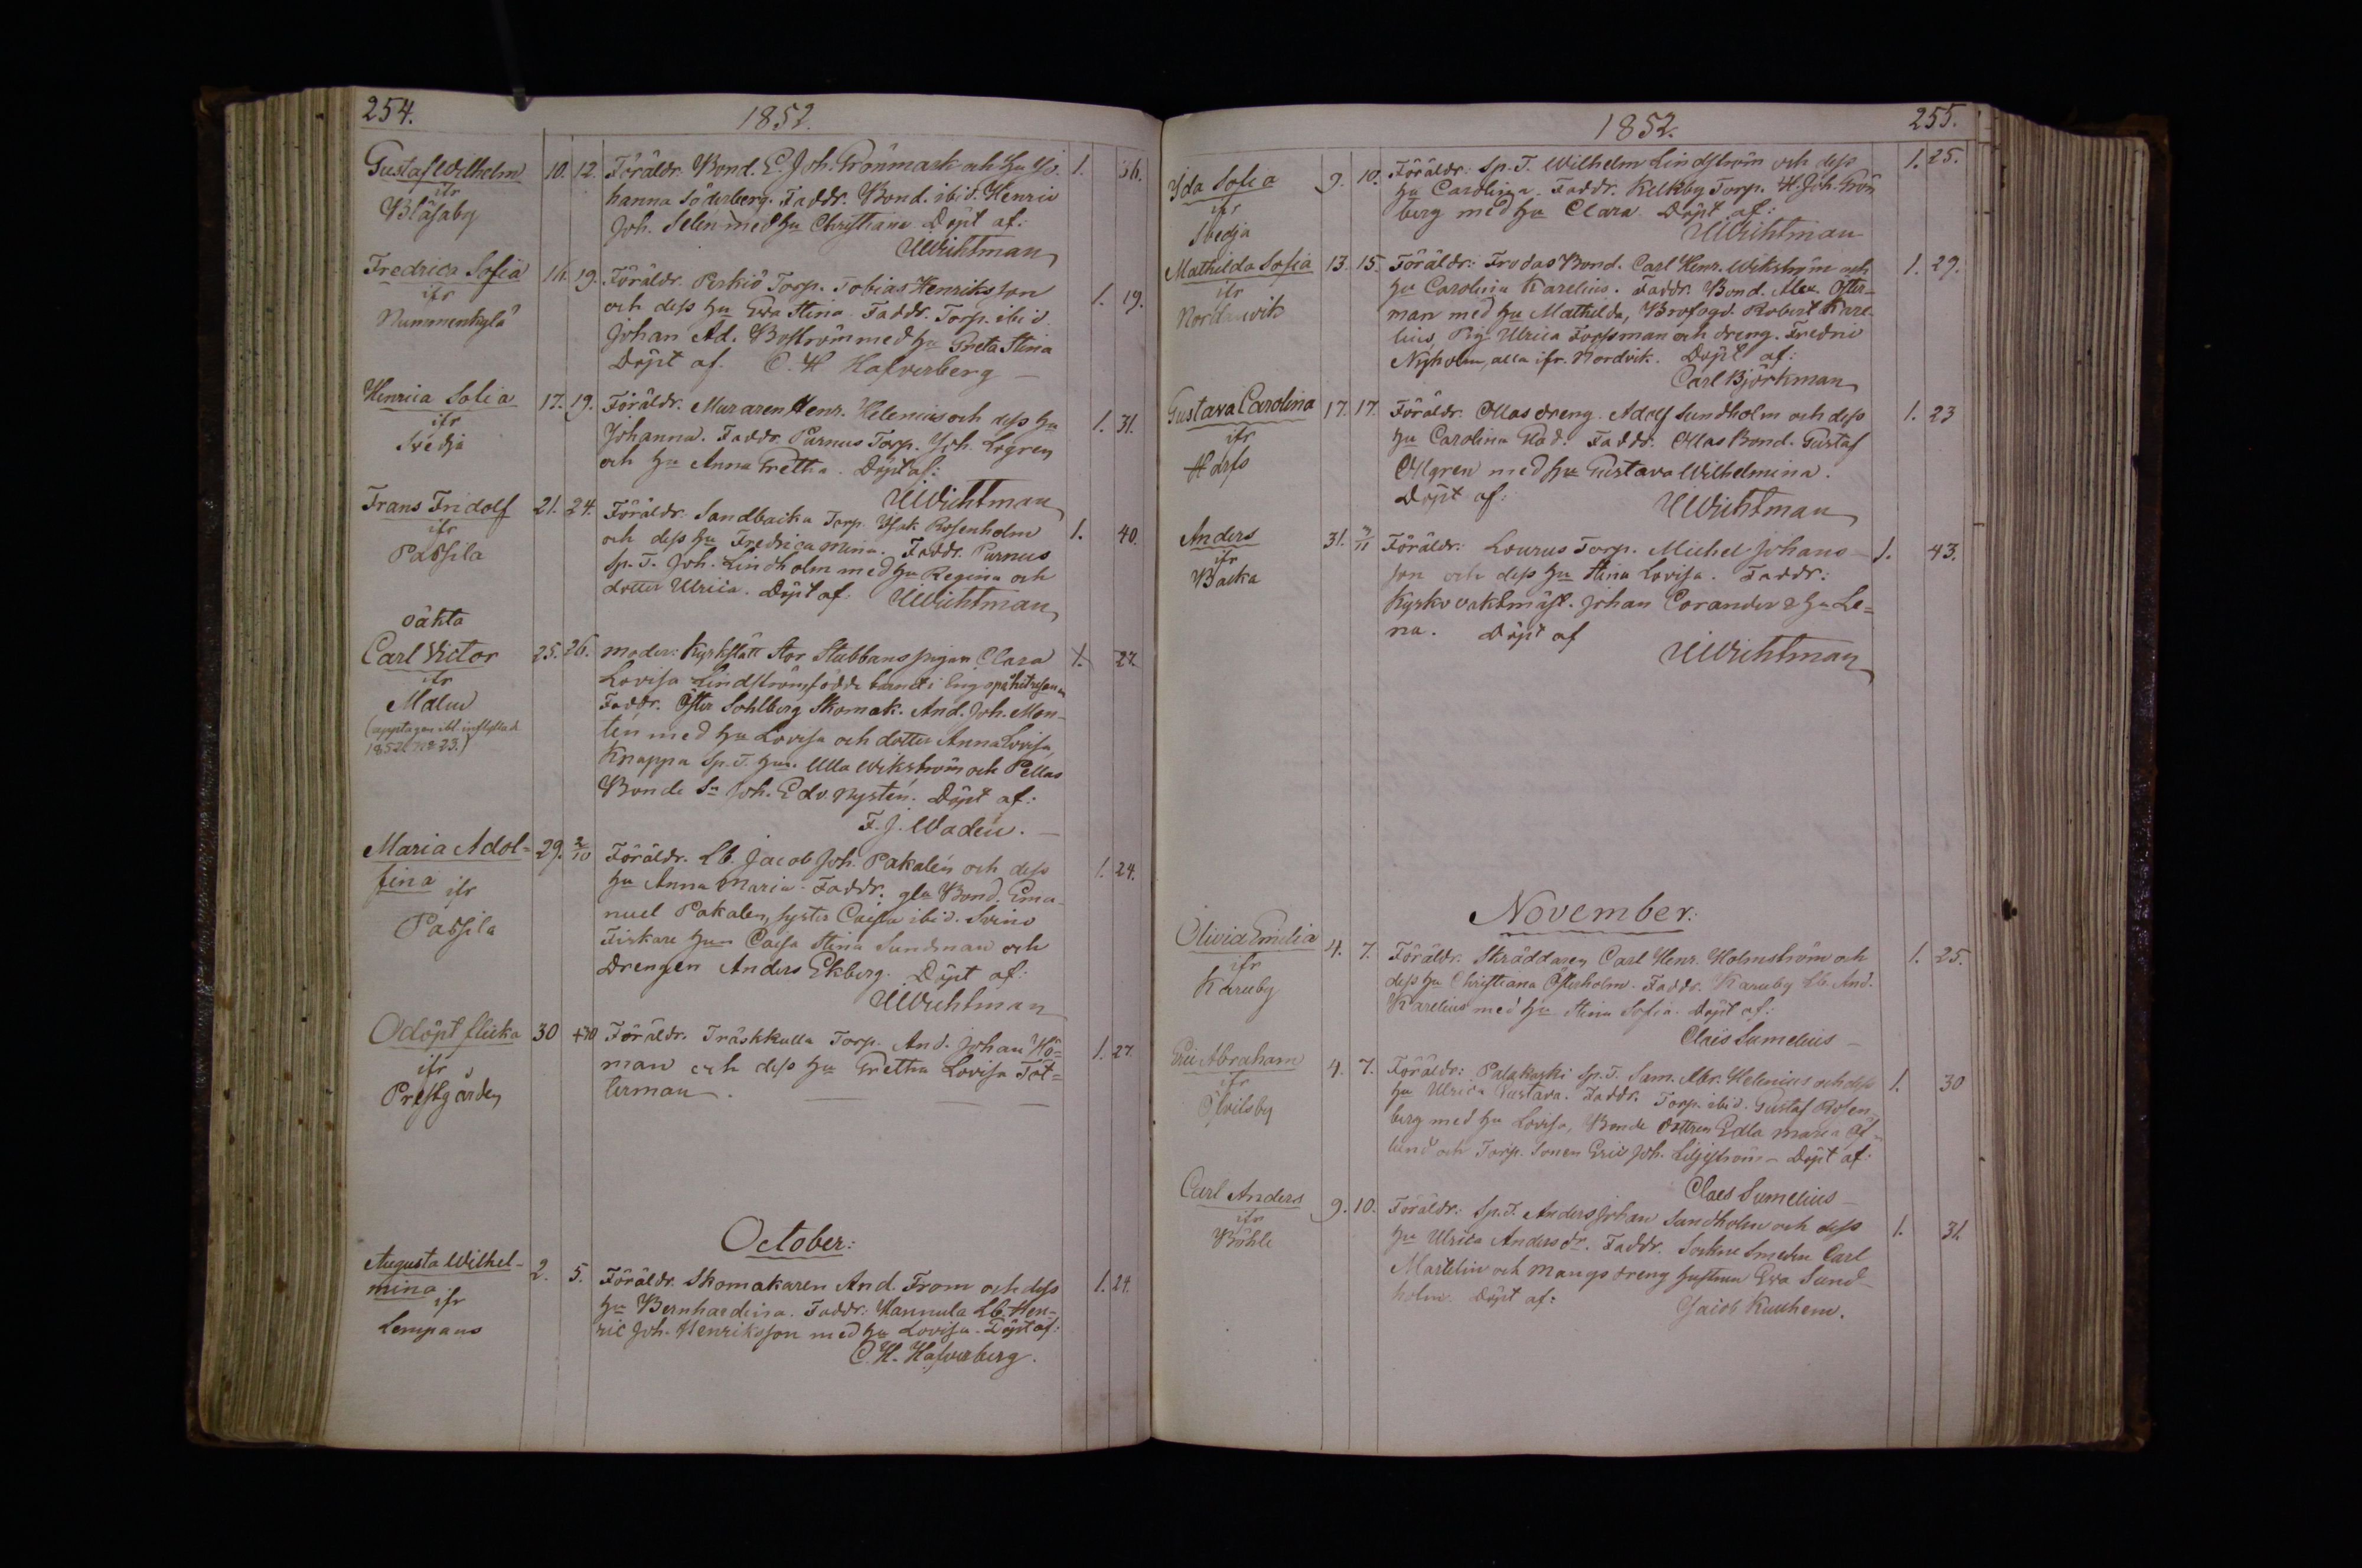 254.
1852.
Gustaf Wilhelm 10. 12. Föräldr. Bond. E. Joh. Grönmark och Hu Jo- 1. 36.
ifr
hanna Söderberg. Faddr. Bond. ibid. Henric
Blåsaby
Joh. Selen med Hu Christiana Döpt af:
UWichtman
Fredrica Sofia 16. 19. Föräldr. Perkiö Torp. Tobias Henriksson 1. 19.
ifr
och dess Hu Ewa Stina. Faddr. Torp. ibid.
Nummenkylä
Johan Ad. Boström med Hu Greta Stina
Döpt af. C. H. Hafverberg
Henrica Sofia 17. 19. Föräldr. Muraren Henr. Helenius och dess Hu 1. 31.
ifr
Johanna. Faddr. Purnus Torp. Joh. Logren
Svedja
och Hu Anna Gretha. Döpt af:
UWichtman
Frans Fridolf 21. 24. Föräldr. Sandbacka Torp. Isak Rosenholm 1. 40.
ifr
och dess Hu Fredrica Mina. Faddr. Purnus
Pabsila
Sp. T. Joh. Lindholm med Hu Regina och
dotter Ulrica. Döpt af. UWichtman
oäkta
Carl Victor 25. 26. moder: Kyrkslätt Stor Stubbans pigan Clara 1. 27.
ifr
Lovisa Lindström, födde barnet i på hitresan
Malm
Faddr. Öster Sohlberg Skomak. And. Joh. Mon-
(upptagen ibl. inflyttad
tén med Hu Lovisa och dotter Anna Lovisa,
1852 No 23.)
Knappa Sp. T. Hu. Ulla Wikström och Pellas
Bonde Sn Joh. Edv. Nystén. Döpt af:
F. J. Wadén.
Maria Adol= 29. 2/10 Föräldr. Lb. Jacob Joh. Pakalén och dess 1. 24.
fina ifr
Hu Anna Maria. Faddr. gla Bond. Ema-
Pabsila
nuel Pakalen, syster Caisa ibid. Svino
Fiskare Hun Caisa Stina Sundman och
Drengen Anders Ekberg. Döpt af:
UWichtman
Odöpt flicka 30 Föräldr. Träskkulla Torp. And. Johan Hö= 1. 27.
ifr
man och dess Hu Gretha Lovisa Töt=
Prestgården
terman.
October:
Augusta Wilhel- 2. 5. Föräldr. Skomakaren And. From och dess 1. 24.
mina ifr
Hu Bernhardina. Faddr: Hannula Lb. Hen-
Lempans
ric Joh. Henriksson med Hu Lovisa. Döpt af:
C. H. Hafverberg.
1852.
255.
Ida Sofia 9. 10. Föräldr: Sp. T. Wilhelm Lindström och dess 1. 25.
ifr
Hu Carolina. Faddr. Kelkby Torp. H. Joh. Grön
Svedja
berg med Hu Clara. Döpt af:
UWichtman
Mathilda Sofia 13. 15. Föräldr: Frodas Bond. Carl Henr. Wikström och 1. 29.
ifr
Hu Carolina Karelius. Faddr. Bond. Alex. Öster-
Nordanvik
man med Hu Mathilda, Brofogd. Robert Kare-
lius, Pig. Ulrica Forssman och dreng. Fredric
Nyholm, alla ifr. Nordvik. Döpt af:
Carl Björkman
Gustava Carolina 17. 17. Föräldr. Ollas dreng. Adolf Sundholm och dess 1. 23
ifr
Hu Carolina Glad. Faddr. Ollas Bond. Gustaf
Ohlgren med Hu Gustava Wilhelmina.
Döpt af: UWichtman
Anders 31. Föräldr: Lourus Torp. Michel Johans- 1. 43.
ifr
son och dess Hu Stina Lovisa. Faddr:
Backa
Kyrkovaktmäst. Johan Corander & Hu Le=
na. Döpt af
UWichtman
November.
Olivia Emilia 4. 7. Föräldr. Skräddaren Carl Henr. Holmström och 1. 25.
ifr
dess Hu Christiana Österholm. Faddr. Karuby Lb. And.
Karuby
Karelius med Hu Stina Sofia. Döpt af:
Claës Sumelius
Eric Abraham 4. 7. Föräldr: Palakoski Sp. T. Sam. Abr. Helenius och dess 1. 30
ifr
Hu Ulrica Gustava. Faddr. Torp. ibid. Gustaf Rosen-
berg med Hu Lovisa, Bonde dottren Edla Maria
lund och Torp. Sonen Eric Joh. Liljeström. Döpt af:
Claes Sumelius
Carl Anders 9. 10. Föräldr: Sp. T. Anders Johan Sundholm och dess 1. 31.
ifr
Hu Ulrica Andersdr. Faddr. Smeden Carl
Böhle
Martelin och Mangs dreng hustrun Ewa Sund-
holm. Döpt af:
Jacob Kuuhem.